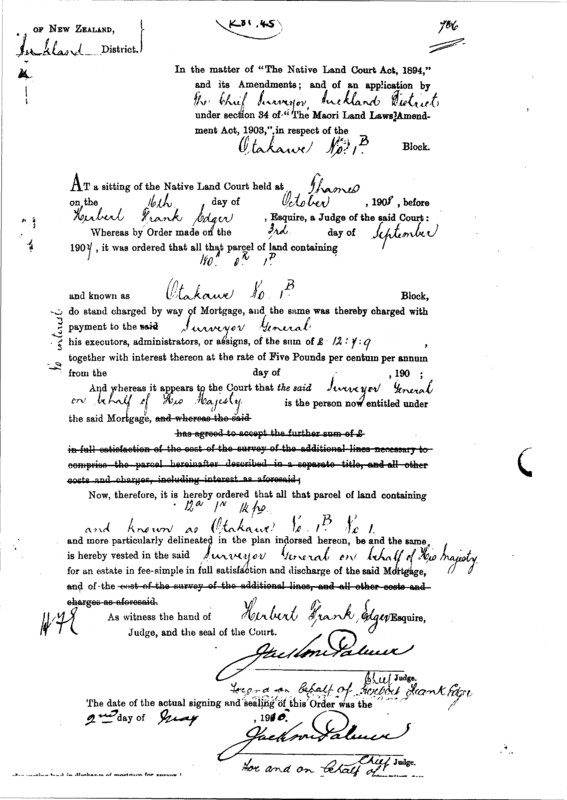 K31.45
786
OF NEW ZEALAND,
Auckland District.
In the matter of "The Native Land Court Act, 1894,"
and its Amendments; and of an application by
The Chief Surveyor, Auckland District
under section 34 of "The Maori Land Laws Amend-
ment Act, 1903," in respect of the
Otakawe No. 1B Block.
AT a sitting of the Native Land Court held at Thames
on the 16th day of October, 1908, before
Herbert Frank Edger, Esquire, a Judge of the said Court:
Whereas by Order made on the 3rd day of September
1907, it was ordered that all that parcel of land containing
180A 0R 1P
and known as Otakawe No 1B Block,
do stand charged by way of Mortgage, and the same was thereby charged with
payment to the said Surveyor General
his executors, administrators, or assigns, of the sum of £ 12:4:9,
No interest
together with interest thereon at the rate of Five Pounds per centum per annum
from the day of , 190 ;
And whereas it appears to the Court that the said Surveyor General
on behalf of His Majesty is the person now entitled under
the said Mortgage, and whereas the said
has agreed to accept the further sum of £
in full satisfaction of the cost of the survey of the additional lines necessary to
comprise the parcel hereinafter described in a separate title, and all other
costs and charges, including interest as aforesaid;
Now, therefore, it is hereby ordered that all that parcel of land containing
12a 1R
and known as Otakawe No. 1B No 1.
and more particularly delineated in the plan indorsed hereon, be and the same,
is hereby vested in the said Surveyor General on behalf of His Majesty
for an estate in fee-simple in full satisfaction and discharge of the said Mortgage,
and of the cost of the survey of the additional lines, and all other costs and
charges as aforesaid.
As witness the hand of Herbert Frank Edger Esquire,
HFE
Judge, and the seal of the Court.
Jackson Palmer
Chief Judge.
For and on behalf of Herbert Frank Edger
The date of the actual signing and sealing of this Order was the
2nd day of May, 1910.
Jackson Palmer
Chief Judge.
For and on behalf of